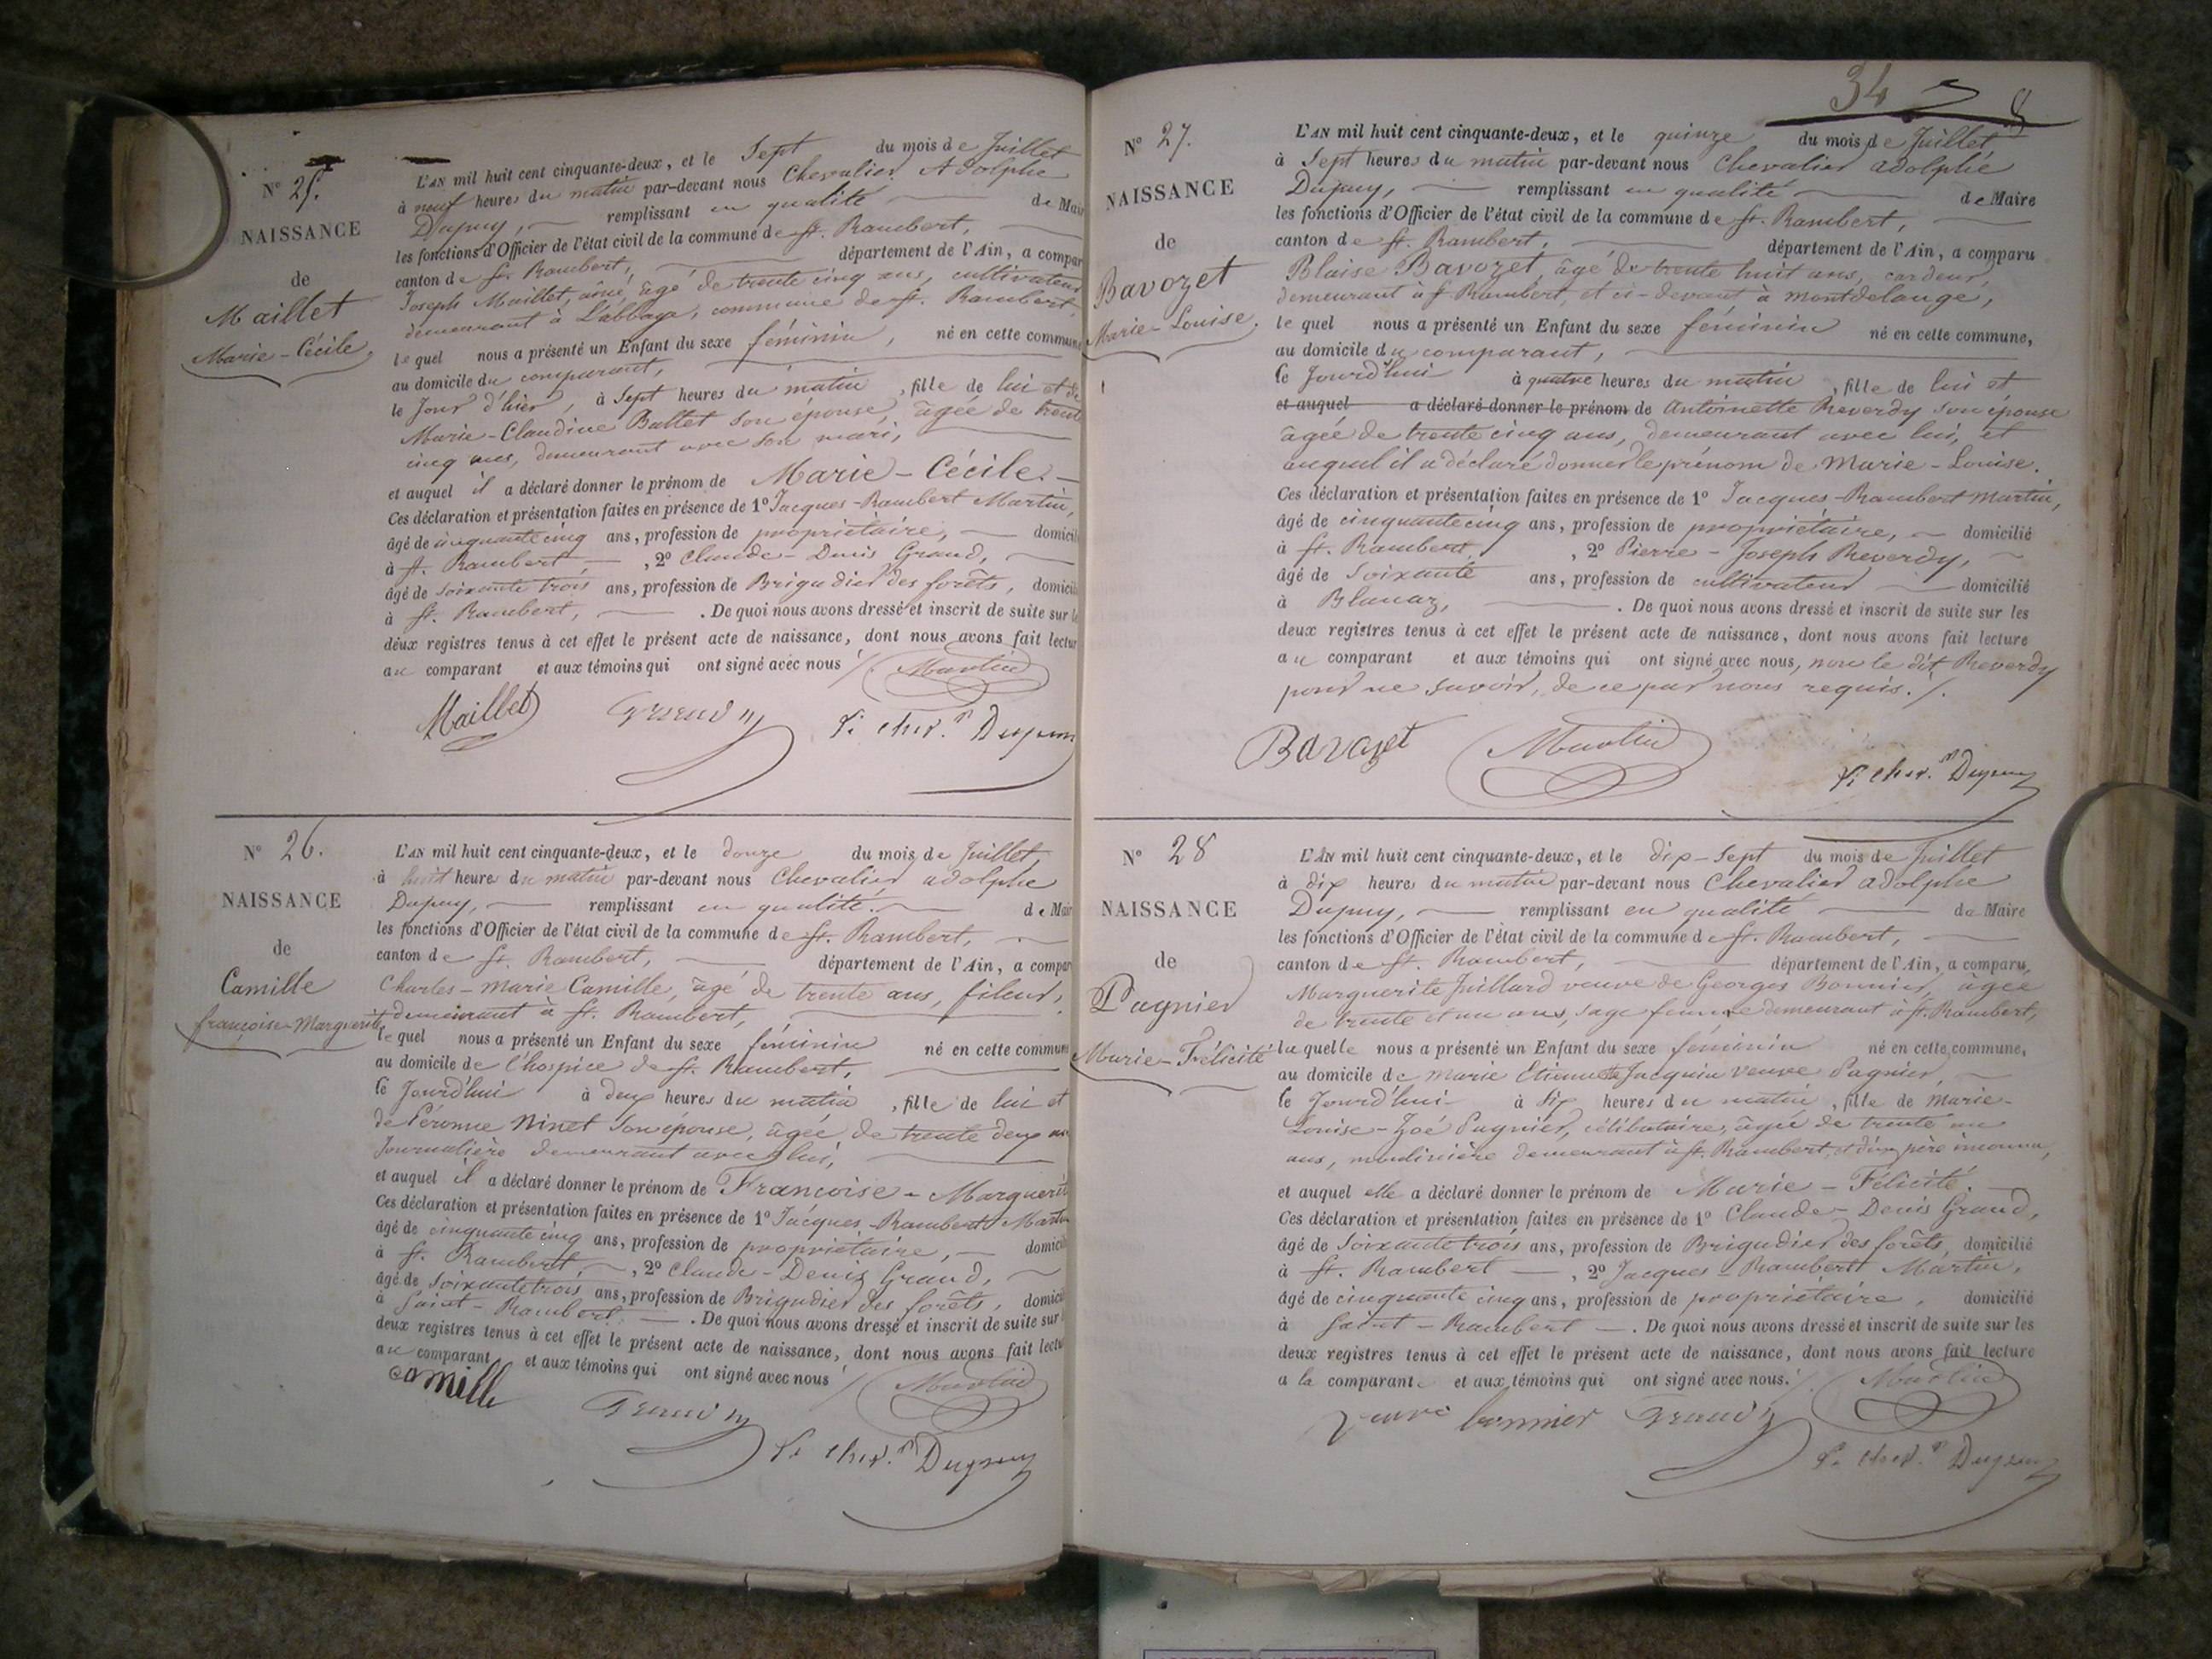 N° 25.
NAISSANCE
de
Maillet
Marie-Cécile,
L'AN mil huit cent cinquante-deux, et le Sept du mois de Juillet
à neuf heures du matin par-devant nous Chevalier Adolphe
Dupuy, remplissant en qualité de Mair
les fonctions d'Officier de l'état civil de la commune de St. Rambert,
canton de St. Rambert, département de l'Ain, a compar
Joseph Maillet, aîné, âgé de trente cinq ans, cultivateur
demeurant à L'abbaye, commune de St. Rambert,
lequel nous a présenté un Enfant du sexe féminin, né en cette commun
au domicile du comparant,
le Jour d'hier, à Sept heures du matin, fille de lui et de
Marie-Claudine Ballet son épouse, âgée de trente
cinq ans, demeurant avec son mari,
et auquel il a déclaré donner le prénom de Marie-Cécile.
Ces déclaration et présentation faites en présence de 1° Jacques-Rambert Martin,
âgé de cinquante cinq ans, profession de propriétaire, domicili
à St. Rambert, 2° Claude-Denis Grand,
âgé de soixante trois ans, profession de Brigadier des forêts, domicili
à St. Rambert, . De quoi nous avons dressé et inscrit de suite sur le
deux registres tenus à cet effet le présent acte de naissance, dont nous avons fait lectur
au comparant et aux témoins qui ont signé avec nous ./. Martin
Maillet Grand Le Chev.er Dupuy
N° 26.
NAISSANCE
de
Camille
françoise-Marguerite
L'AN mil huit cent cinquante-deux, et le douze du mois de Juillet,
à huit heures du matin par-devant nous Chevalier adolphe
Dupuy, remplissant en qualité de Mair
les fonctions d'Officier de l'état civil de la commune de St. Rambert,
canton de St. Rambert, département de l'Ain, a compar
Charles-Marie Camille, âgé de trente ans, fileur,
demeurant à St. Rambert,
lequel nous a présenté un Enfant du sexe féminin né en cette commune
au domicile de l'hospice de St. Rambert,
le Jourd'hui à deux heures du matin, fille de lui et
de Péronne Ninet son épouse, âgée de trente deux ans
Journalière demeurant avec lui,
et auquel il a déclaré donner le prénom de Françoise-Marguerit
Ces déclaration et présentation faites en présence de 1° Jacques-Rambert Martin
âgé de cinquante cinq ans, profession de propriétaire, domicili
à St. Rambert, 2° Claude-Denis Grand,
âgé de soixante trois ans, profession de Brigadier des forêts, domicil
à Saint-Rambert, . De quoi nous avons dressé et inscrit de suite sur l
deux registres tenus à cet effet le présent acte de naissance, dont nous avons fait lectu
au comparant et aux témoins qui ont signé avec nous ./. Martin
camille Grand
Le Chev.er Dupuy
34
N° 27.
NAISSANCE
de
Bavozet
Marie-Louise,
L'AN mil huit cent cinquante-deux, et le quinze du mois de Juillet,
à Sept heures du matin par-devant nous Chevalier adolphe
Dupuy, remplissant en qualité de Maire
les fonctions d'Officier de l'état civil de la commune de St. Rambert,
canton de St. Rambert, département de l'Ain, a comparu
Blaise Bavozet, âgé de trente huit ans, cardeur,
demeurant à St. Rambert, et ci-devant à Montdelange,
lequel nous a présenté un Enfant du sexe féminin né en cette commune,
au domicile du comparant,
le Jourd'hui à quatre heures du matin, fille de lui et
et auquel a déclaré donner le prénom de Antoinette Reverdy son épouse
âgée de trente cinq ans, demeurant avec lui, et
auquel il a déclaré donner le prénom de Marie-Louise.
Ces déclaration et présentation faites en présence de 1° Jacques-Rambert Martin,
âgé de cinquante cinq ans, profession de propriétaire, domicilié
à St. Rambert, 2° Pierre-Joseph Reverdy,
âgé de Soixante ans, profession de cultivateur domicilié
à Blanaz, . De quoi nous avons dressé et inscrit de suite sur les
deux registres tenus à cet effet le présent acte de naissance, dont nous avons fait lecture
au comparant et aux témoins qui ont signé avec nous, non le dit Reverdy
pour ne savoir, de ce par nous requis. ./.
Bavozet Martin Le Chev.er Dupuy
N° 28
NAISSANCE
de
Pagnier
Marie-Félicité
L'AN mil huit cent cinquante-deux, et le dix-Sept du mois de Juillet
à dix heures du matin par-devant nous Chevalier adolphe
Dupuy, remplissant en qualité de Maire
les fonctions d'Officier de l'état civil de la commune de St. Rambert,
canton de St. Rambert, département de l'Ain, a comparu
Marguerite Juillard veuve de Georges Bonnier, âgée
de trente et un ans, sage femme demeurant à St. Rambert,
laquelle nous a présenté un Enfant du sexe féminin né en cette commune,
au domicile de Marie Etiennette Jacquin veuve Pagnier,
le Jourd'hui à six heures du matin, fille de Marie-
Louise-Zoé Pagnier, célibataire, âgée de trente un
ans, moulinière demeurant à St. Rambert, et d'un père inconnu,
et auquel elle a déclaré donner le prénom de Marie-Félicité.
Ces déclaration et présentation faites en présence de 1° Claude-Denis Grand,
âgé de Soixante trois ans, profession de Brigadier des forêts, domicilié
à St. Rambert, 2° Jacques-Rambert Martin,
âgé de cinquante cinq ans, profession de propriétaire, domicilié
à Saint-Rambert . De quoi nous avons dressé et inscrit de suite sur les
deux registres tenus à cet effet le présent acte de naissance, dont nous avons fait lecture
a la comparante et aux témoins qui ont signé avec nous. ./. Martin
veuve bonnier Grand
Le Chev.er Dupuy